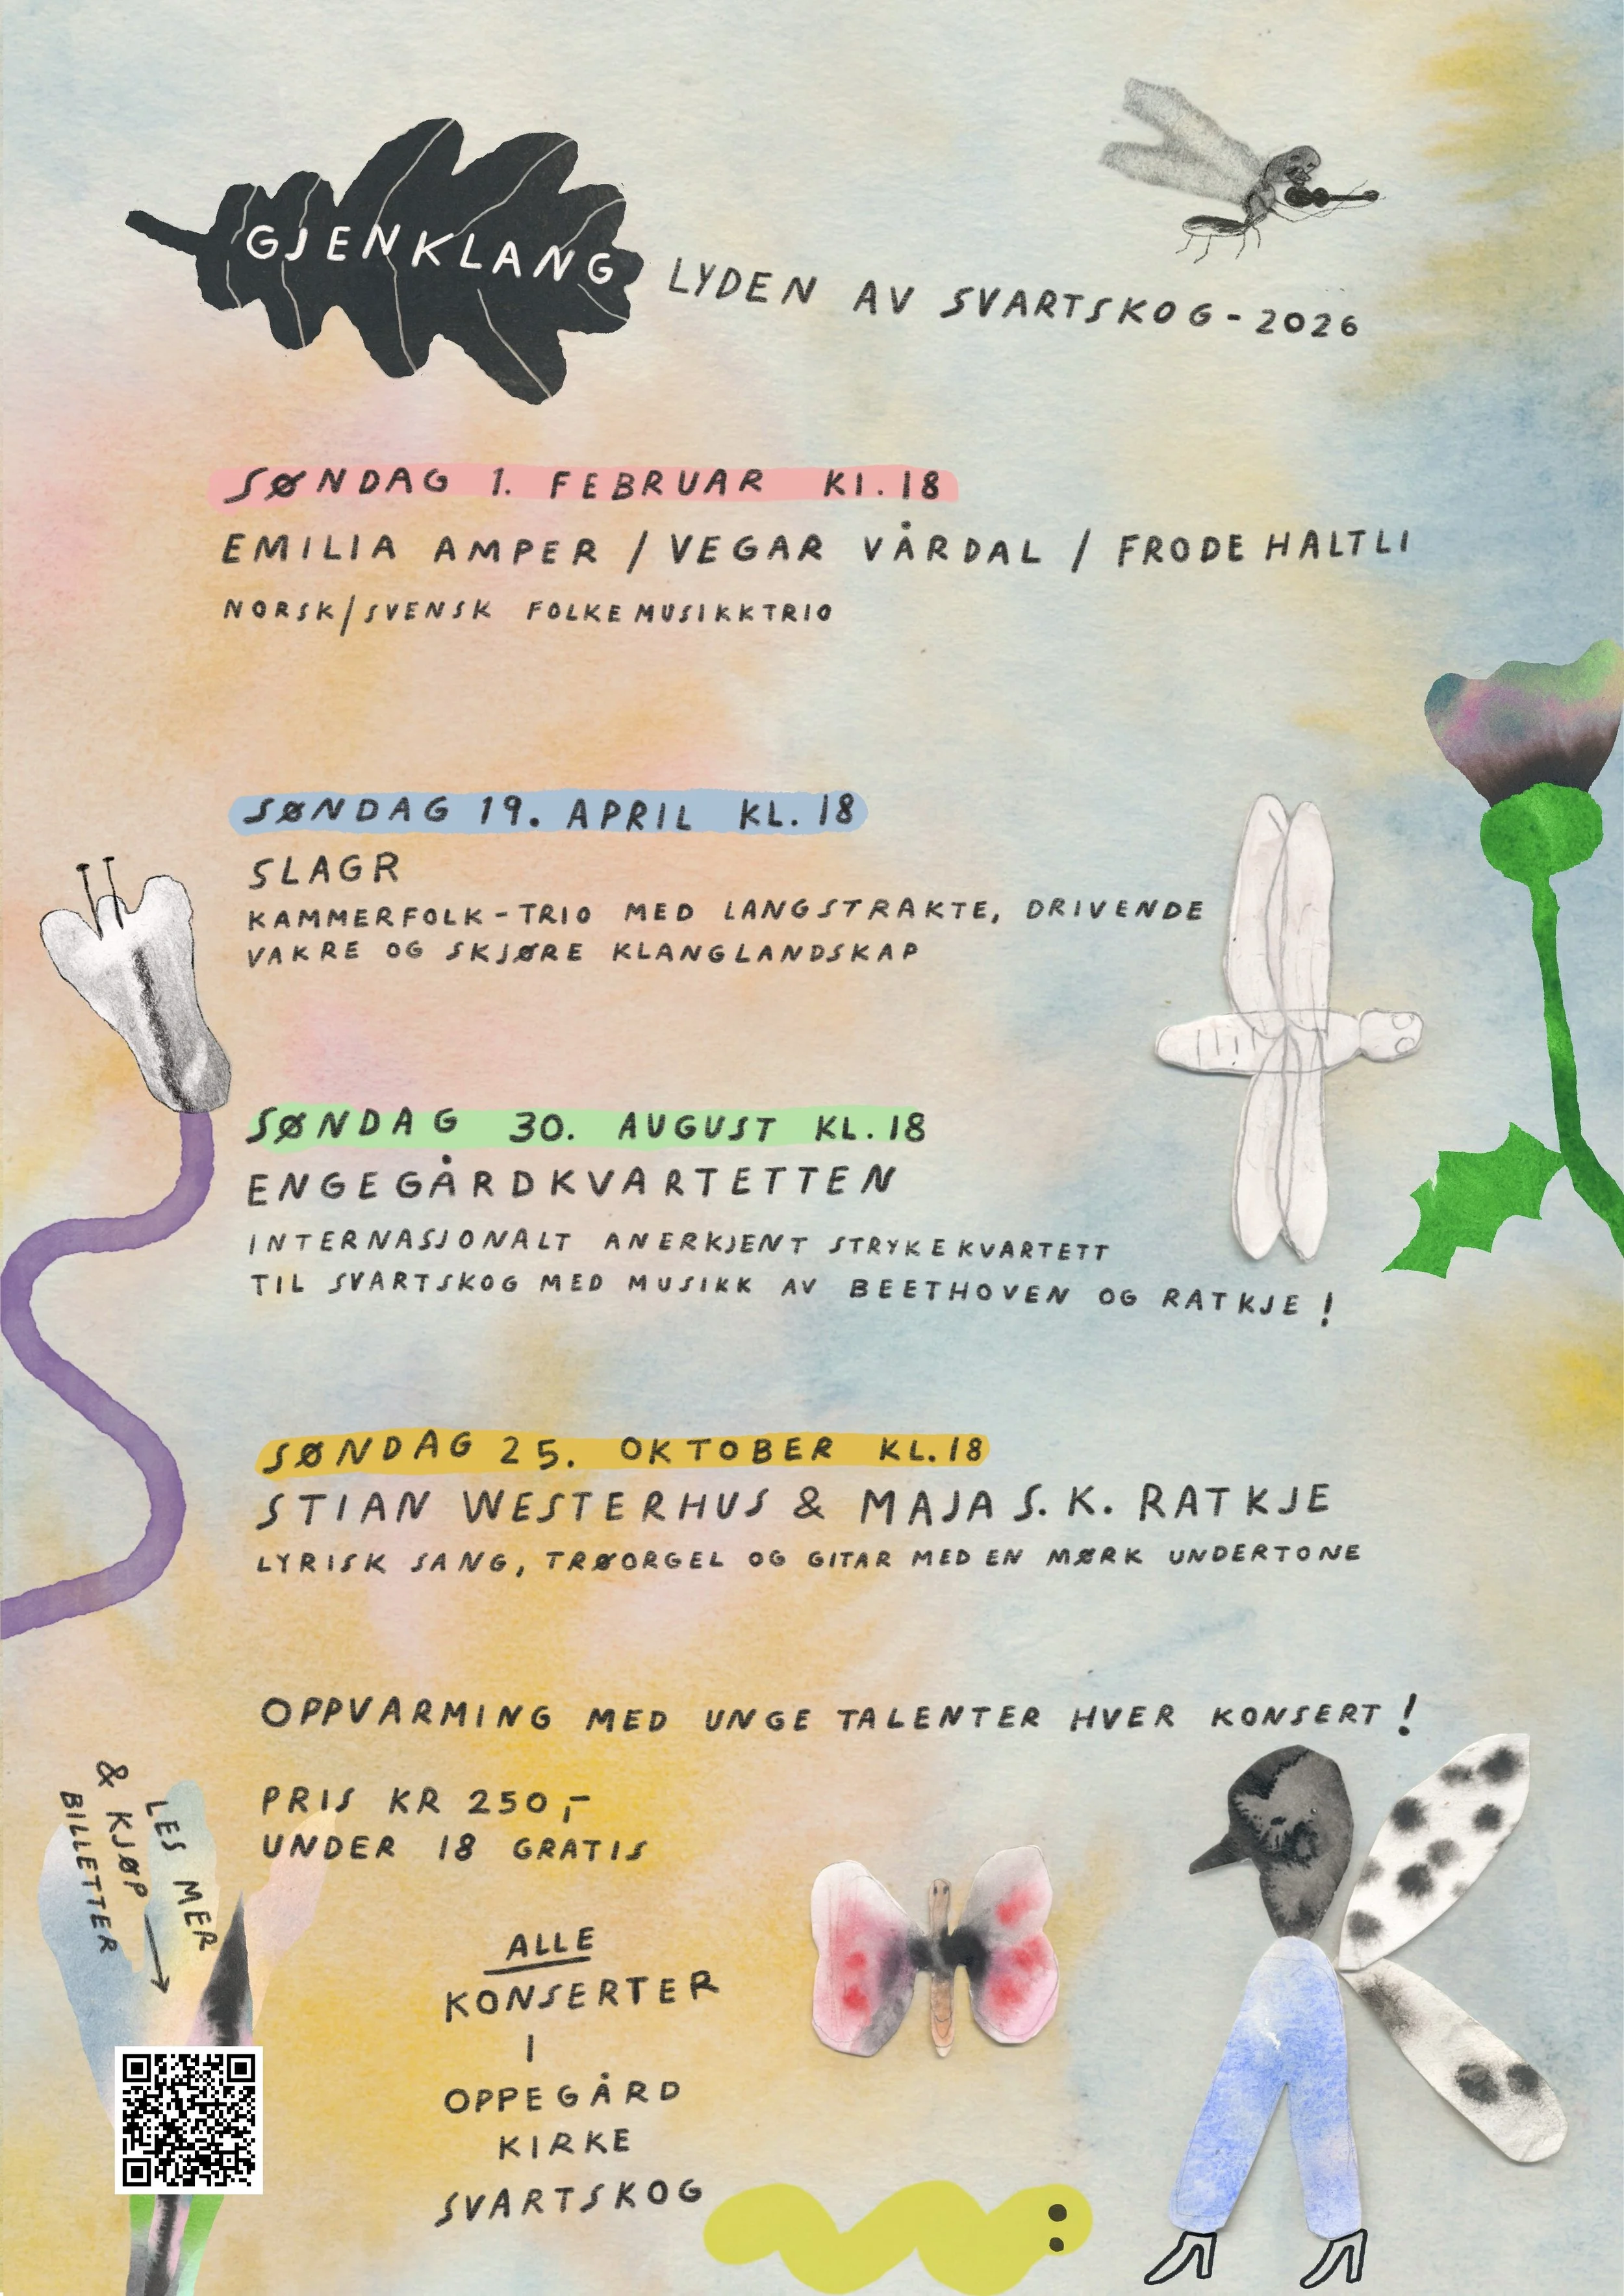 GJENKLANG
LYDEN AV SVARTSKOG - 2026
SØNDAG 1. FEBRUAR Kl. 18
EMILIA AMPER / VEGAR VÅRDAL / FRODE HALTLI
NORSK/SVENSK FOLKEMUSIKKTRIO
SØNDAG 19. APRIL KL. 18
SLAGR
KAMMERFOLK-TRIO MED LANGSTRAKTE, DRIVENDE
VAKRE OG SKJØRE KLANGLANDSKAP
SØNDAG 30. AUGUST KL. 18
ENGEGÅRDKVARTETTEN
INTERNASJONALT ANERKJENT STRYKEKVARTETT
TIL SVARTSKOG MED MUSIKK AV BEETHOVEN OG RATKJE !
SØNDAG 25. OKTOBER KL. 18
STIAN WESTERHUS & MAJA S. K. RATKJE
LYRISK SANG, TRØORGEL OG GITAR MED EN MØRK UNDERTONE
OPPVARMING MED UNGE TALENTER HVER KONSERT !
PRIS KR 250,-
UNDER 18 GRATIS
LES MER
& KJØP
BILLETTER
ALLE
KONSERTER
I
OPPEGÅRD
KIRKE
SVARTSKOG